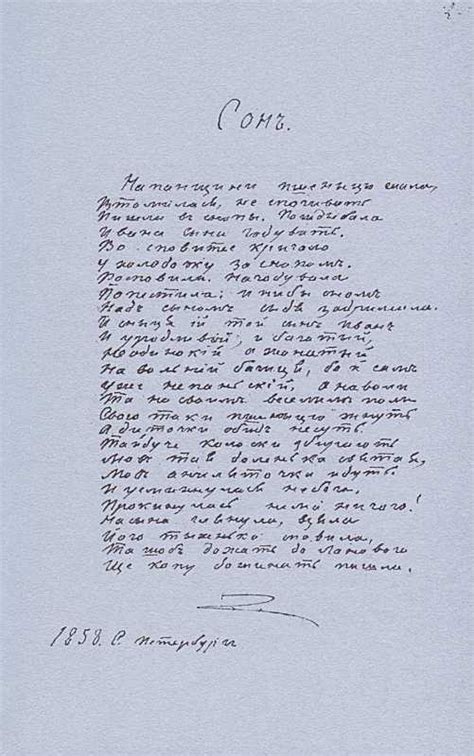 Сонъ.
На панщини пшеницю жала,
Втомилася, не спочивать
Пишла в снопы.
Ивана сына годувать.
Во сповитее кричало
У холодочку за снопомъ.
Росповила, нагодувала
Попестила; и ниби сномъ
Надъ сыномъ сыдя задримала.
И сныця ій той сынъ Иванъ
И уродливій, и богатый,
Не одинокій а жонатый
На вольній бо и самъ
Уже не панській, а на воли
Та на своимъ веселимъ поли
Свою таки пшеницю жнуть
А диточки обидъ несуть.
колоски
Моя
Моя
И усмихнулася небога,
Прокинулась нема ничого!
На сына глянула, взяла
Його тыхенько сповила,
Та щобъ дожать до ланового
Ще копу дожинать пишла.
1858. С. Петербургъ